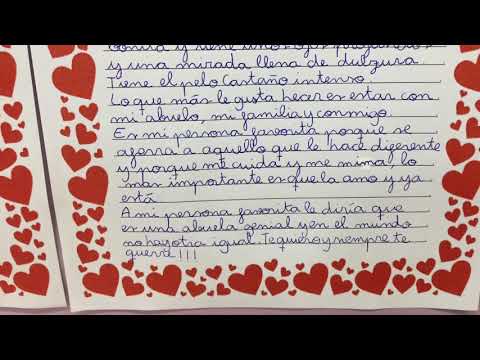 y tiene unos ojos
y una mirada llena de dulzura.
Tiene el pelo castaño intenso.
Lo que más le gusta hacer es estar con
mi abuelo, mi familia y conmigo.
Es mi persona favorita porque se
agarra a aquello que le hace diferente
y porque me cuida y me mima, lo
más importante es que la amo y ya
está.
A mi persona favorita le diría que
es una abuela genial y en el mundo
no hay otra igual. Te quiero y siempre te
querré!!!